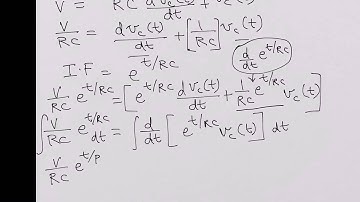 V = RC dv_c(t)/dt + v_c(t)
V/RC = dv_c(t)/dt + [1/RC] v_c(t)
d/dt e^t/RC
I.F = e^t/RC
V/RC e^t/RC = [e^t/RC dv_c(t)/dt + 1/RC e^t/RC v_c(t)]
∫ V/RC e^t/RC dt = ∫ d/dt [e^t/RC v_c(t)] dt
V/RC e^t/P